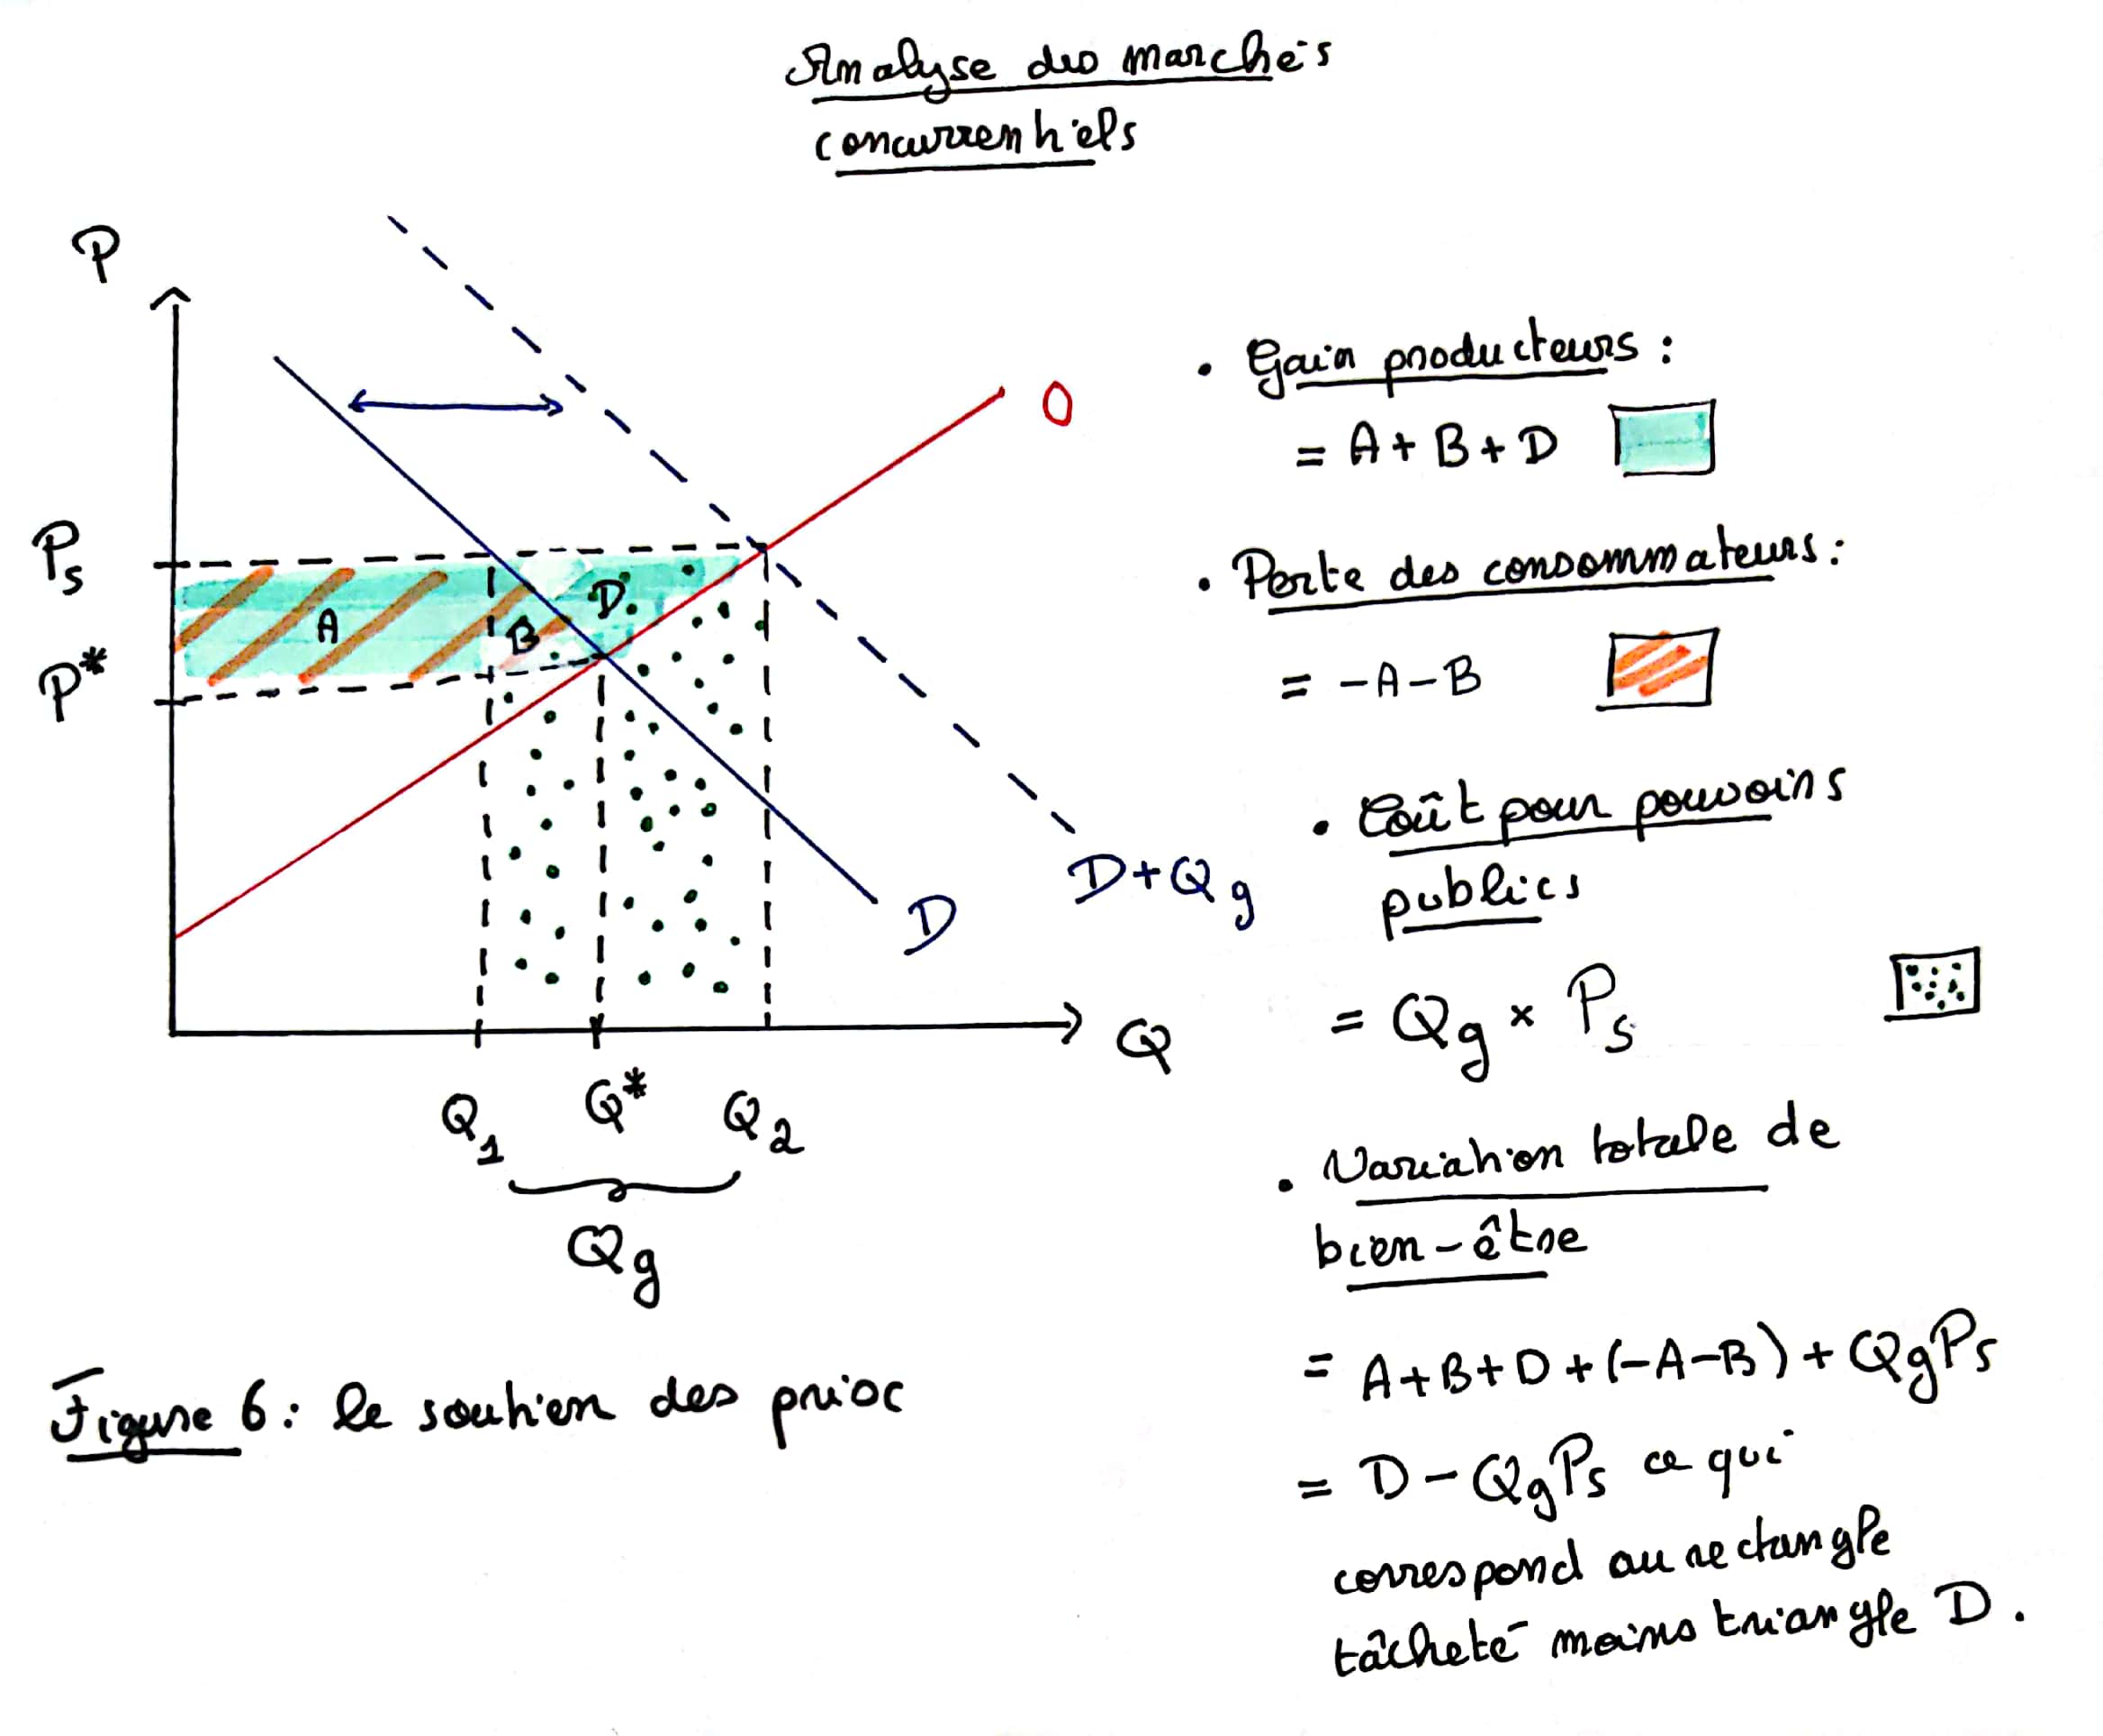 Analyse des marchés
concurrentiels
P
O
Ps
P*
A
B
D
D+Qg
D
Q
Q1
Q*
Q2
Qg
Figure 6: le soutien des prix
• Gain producteurs :
= A + B + D
• Perte des consommateurs :
= -A-B
• Coût pour pouvoirs
publics
= Qg × Ps
• Variation totale de
bien-être
= A+B+D+(-A-B)+QgPs
= D-QgPs ce qui
correspond au rectangle
tâcheté moins triangle D.